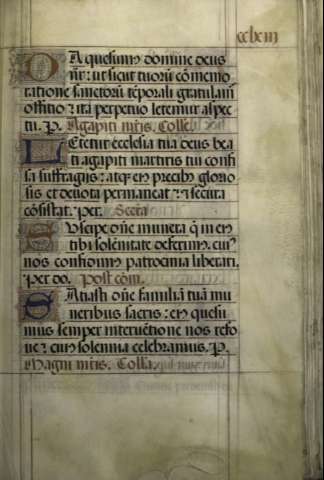 cclxxiij
DA quesumus domine deus
nr̄: ut sicut tuorū cōmemo
ratione sanctorū tēporali gratulam̄
offitio: ita perpetuo letemur aspec
tu. P. Agapiti mr̄is. Collc̄.
LEtetur ecclesia tua deus bea
ti agapiti martiris tui confi
sa suffragijs: atqꝫ eiꝰ precibꝫ glorio
sis et deuota permaneat: et secura
cōsistat. Per. Secreta
SUscipe dn̄e munera q̄ in eiꝰ
tibi solēnitate deferimꝰ. cuiꝰ
nos confidimꝰ patrocinia liberari.
Per do. Post cōm.
SAtiasti dn̄e familiā tuā mu
neribus sacris: eiꝰ quesu
mus semper interuētione nos refo
ue: cuiꝰ solemnia celebramus. P.
Magni mr̄is. Collc̄a.